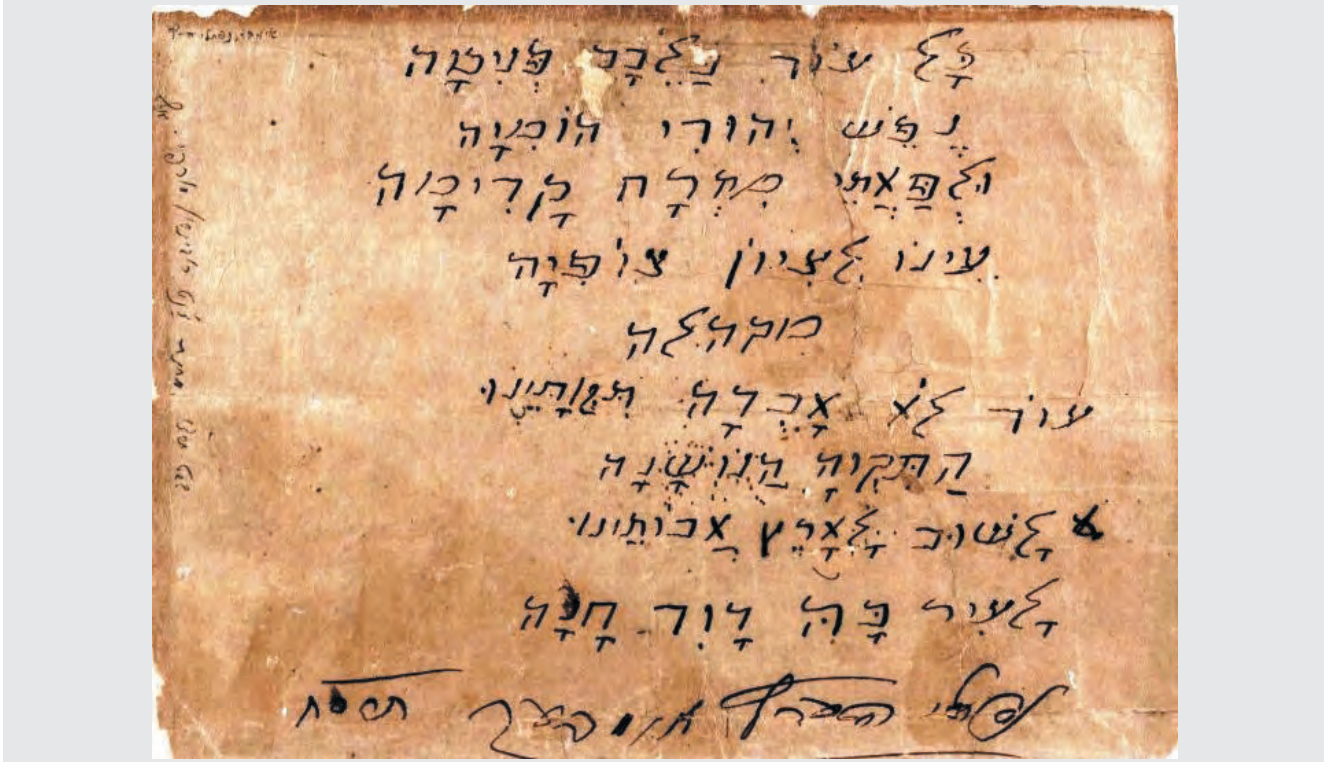 אימבר, נפתלי הרץ
כָּל עוֹד בַּלֵבָב פְּנִימָה
נֶפֶשׁ יְהוּדִי הוֹמִיָה
וּלְפַאֲתֵי מִזְרָח קָדִימָה
עֵינוֹ לְצִיוֹן צוֹפִיָה
מקהלה
עוֹד לֹא אָבְדָה תִּקְוָתֵינוּ
הַתִּקְוָה הַנוֹשָׁנָה
לָשׁוּב לְאֶרֶץ אֲבוֹתֵינוּ
לָעִיר בָּהּ דָוִד חָנָה
נפתלי הערץ אימבער